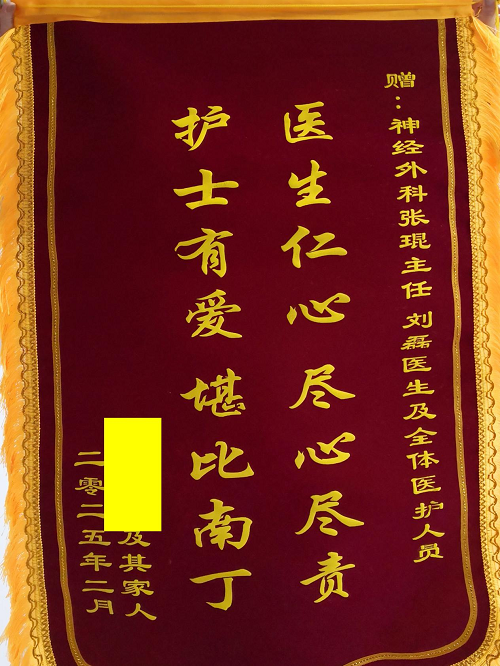 赠：神经外科张琨主任 刘磊医生及全体医护人员
医生仁心 尽心尽责
护士有爱 堪比南丁
及其家人
二零二五年二月